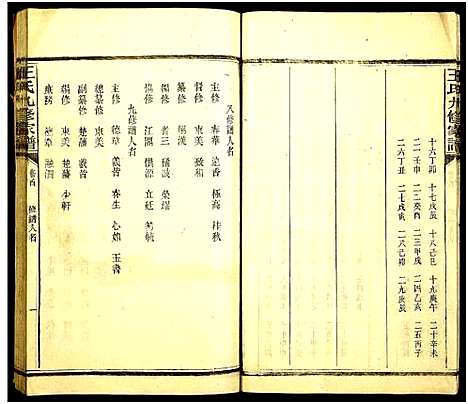 王氏九修家譜
十六丁卯 十七戊辰 十八己巳 十九庚午 二十辛未
二一壬申 二二癸酉 二三甲戌 二四乙亥 二五丙子
二六丁丑 二七戊寅 二八己卯 二九庚辰
八修譜人名
主修 春華 遠香 極高 桂秋
督修 東美 致和
總修 耀漢
纂修 省三 福誠
編修 江闊 儐虞 直廷
九修譜人名
主修 德章 義哲 春生 心如 玉書
總纂修 東美
副纂修 楚藩 義哲
編修 東美 楚藩 少軒
德章
王氏九修家譜 卷首 修譜人名 一